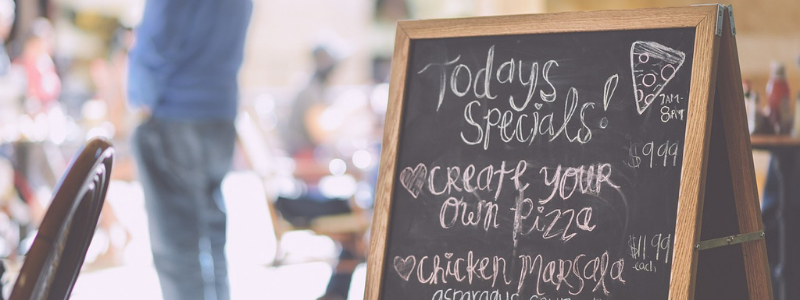 Todays
Specials!
7AM-
8PM
$9.99
create your
own Pizza
$11.99
each
chicken Marsala
asparagus